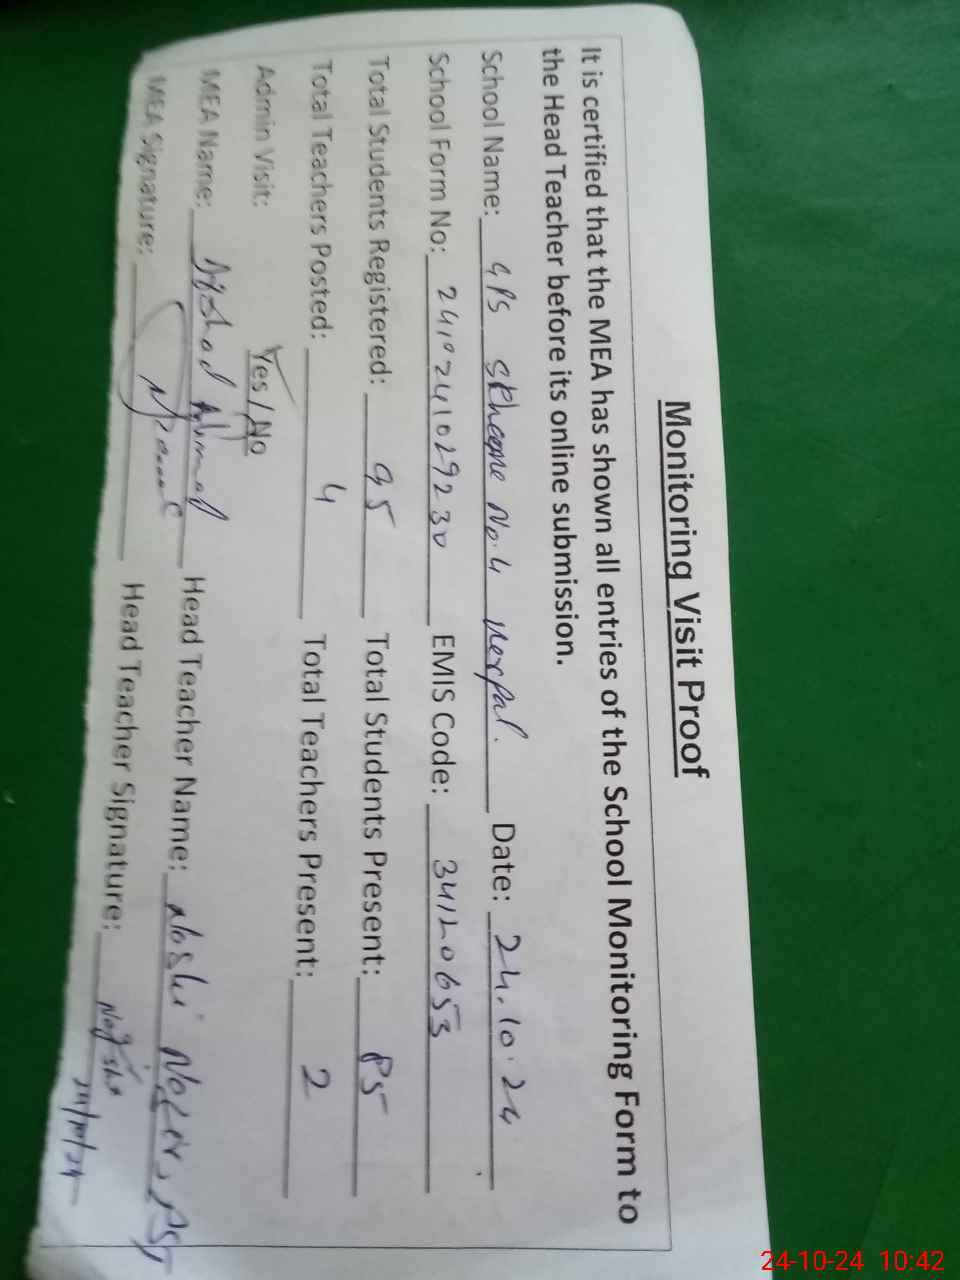 Monitoring Visit Proof
It is certified that the MEA has shown all entries of the School Monitoring Form to
the Head Teacher before its online submission.
School Name: GPS Scheme No.4 Date: 24.10.24
School Form No: 24102410292 30 EMIS Code: 34120653
Total Students Registered: 95 Total Students Present: 85
Total Teachers Posted: 4 Total Teachers Present: 2
Admin Visit: Yes / No
MEA Name: Ahmad Head Teacher Name: Noshi PST
MEA Signature: Head Teacher Signature:
24/10/24
24-10-24 10:42